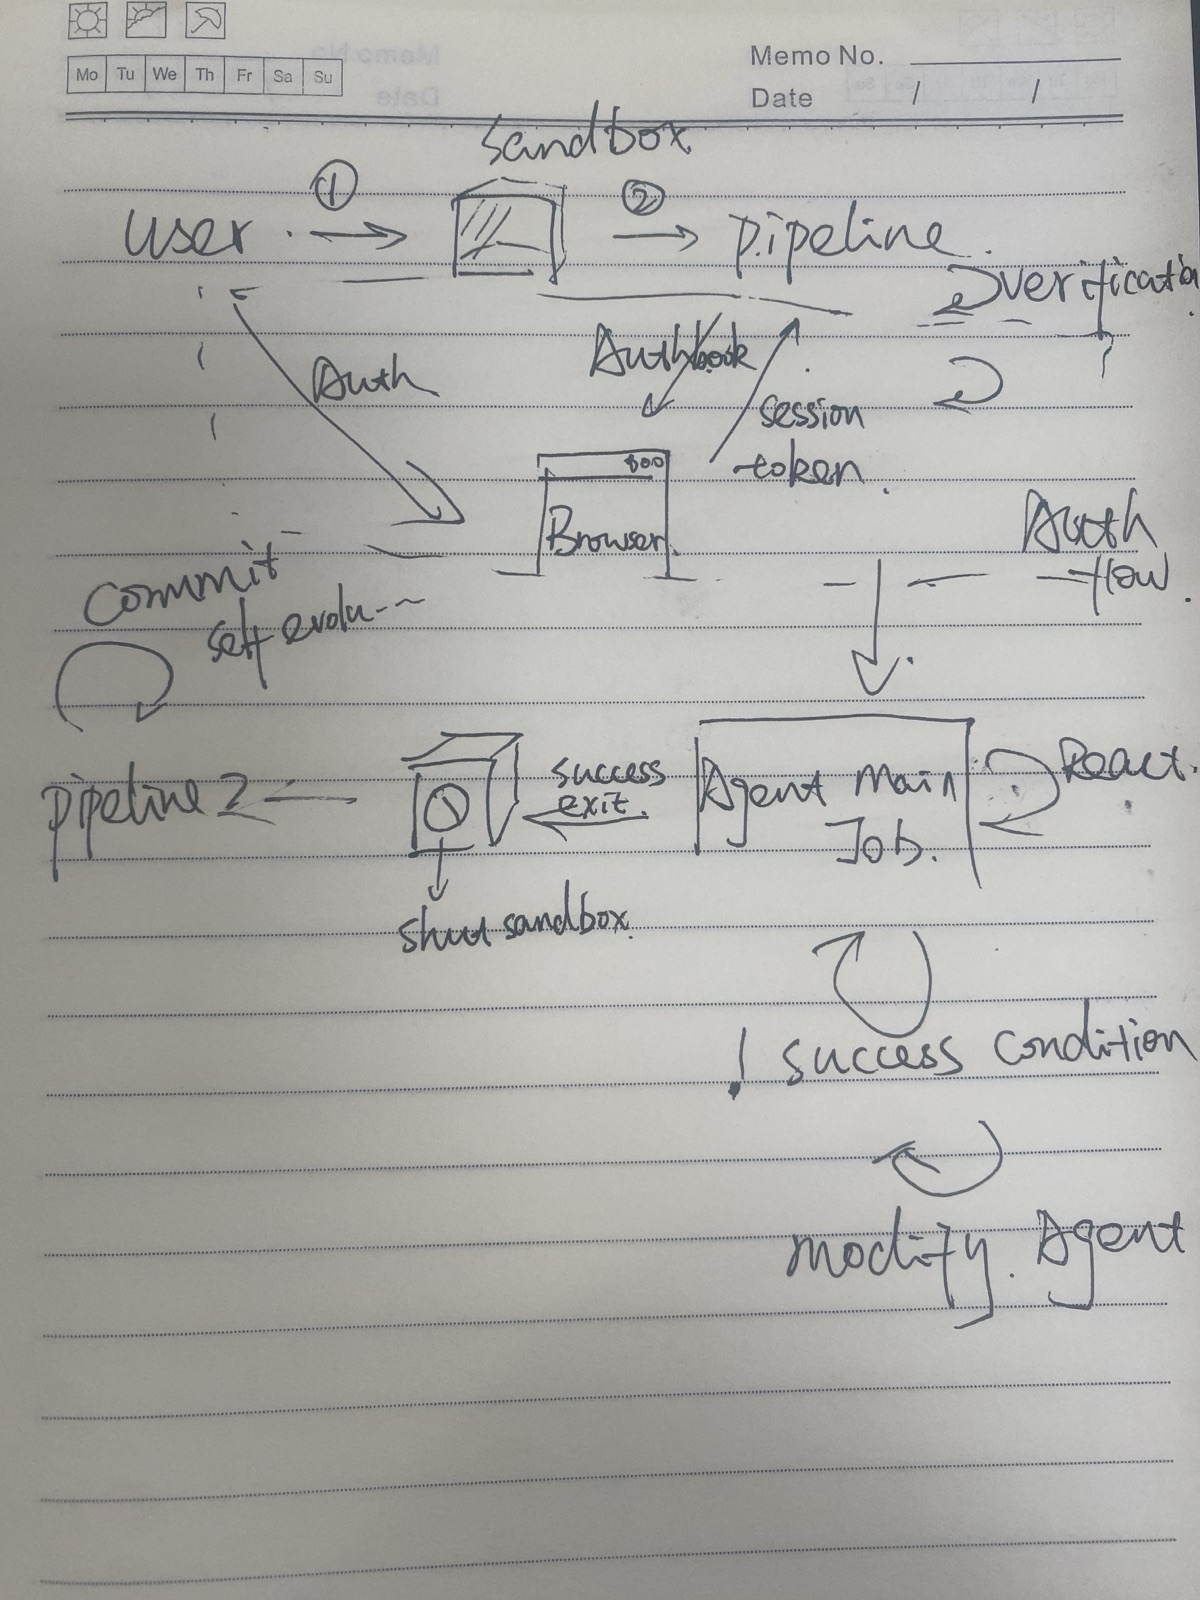 Mo Tu We Th Fr Sa Su
Memo No.
Date / /
sandbox
① ②
user pipeline.
verification
Auth
Auth book
session
token.
Browser.
Auth
flow.
Commit
self evolu---
pipeline 2
success
exit.
Agent Main
Job.
React.
shut sandbox.
! success condition
modify. Agent